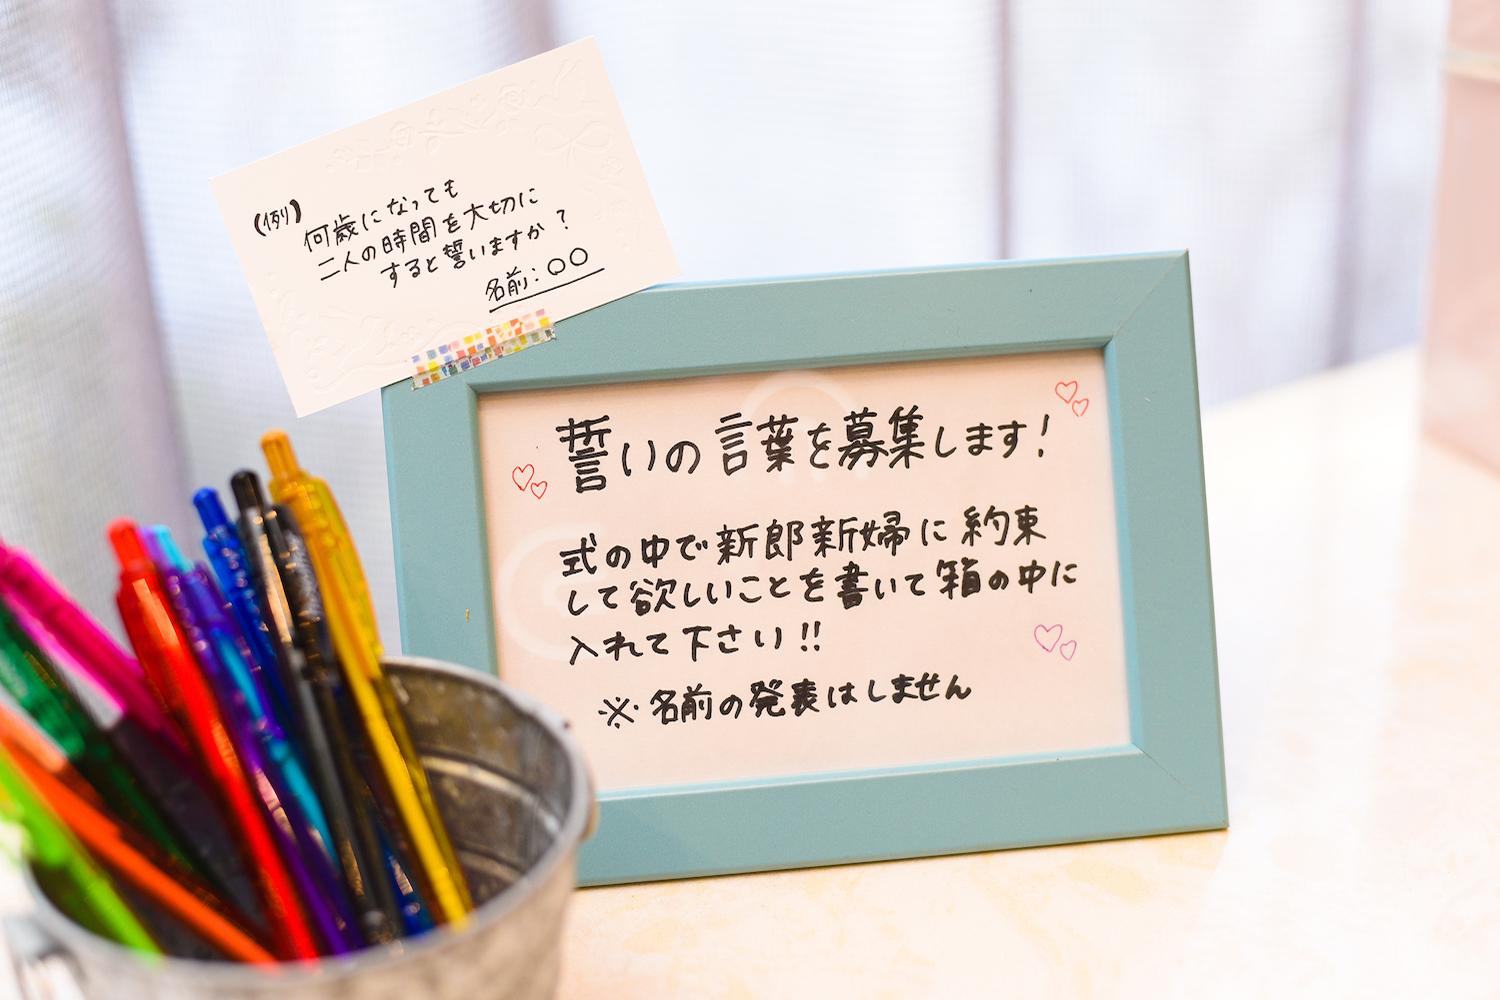 (例)
何歳になっても
二人の時間を大切に
すると誓いますか？
名前：○○
誓いの言葉を募集します！
式の中で新郎新婦に約束
して欲しいことを書いて箱の中に
入れて下さい!!
※名前の発表はしません